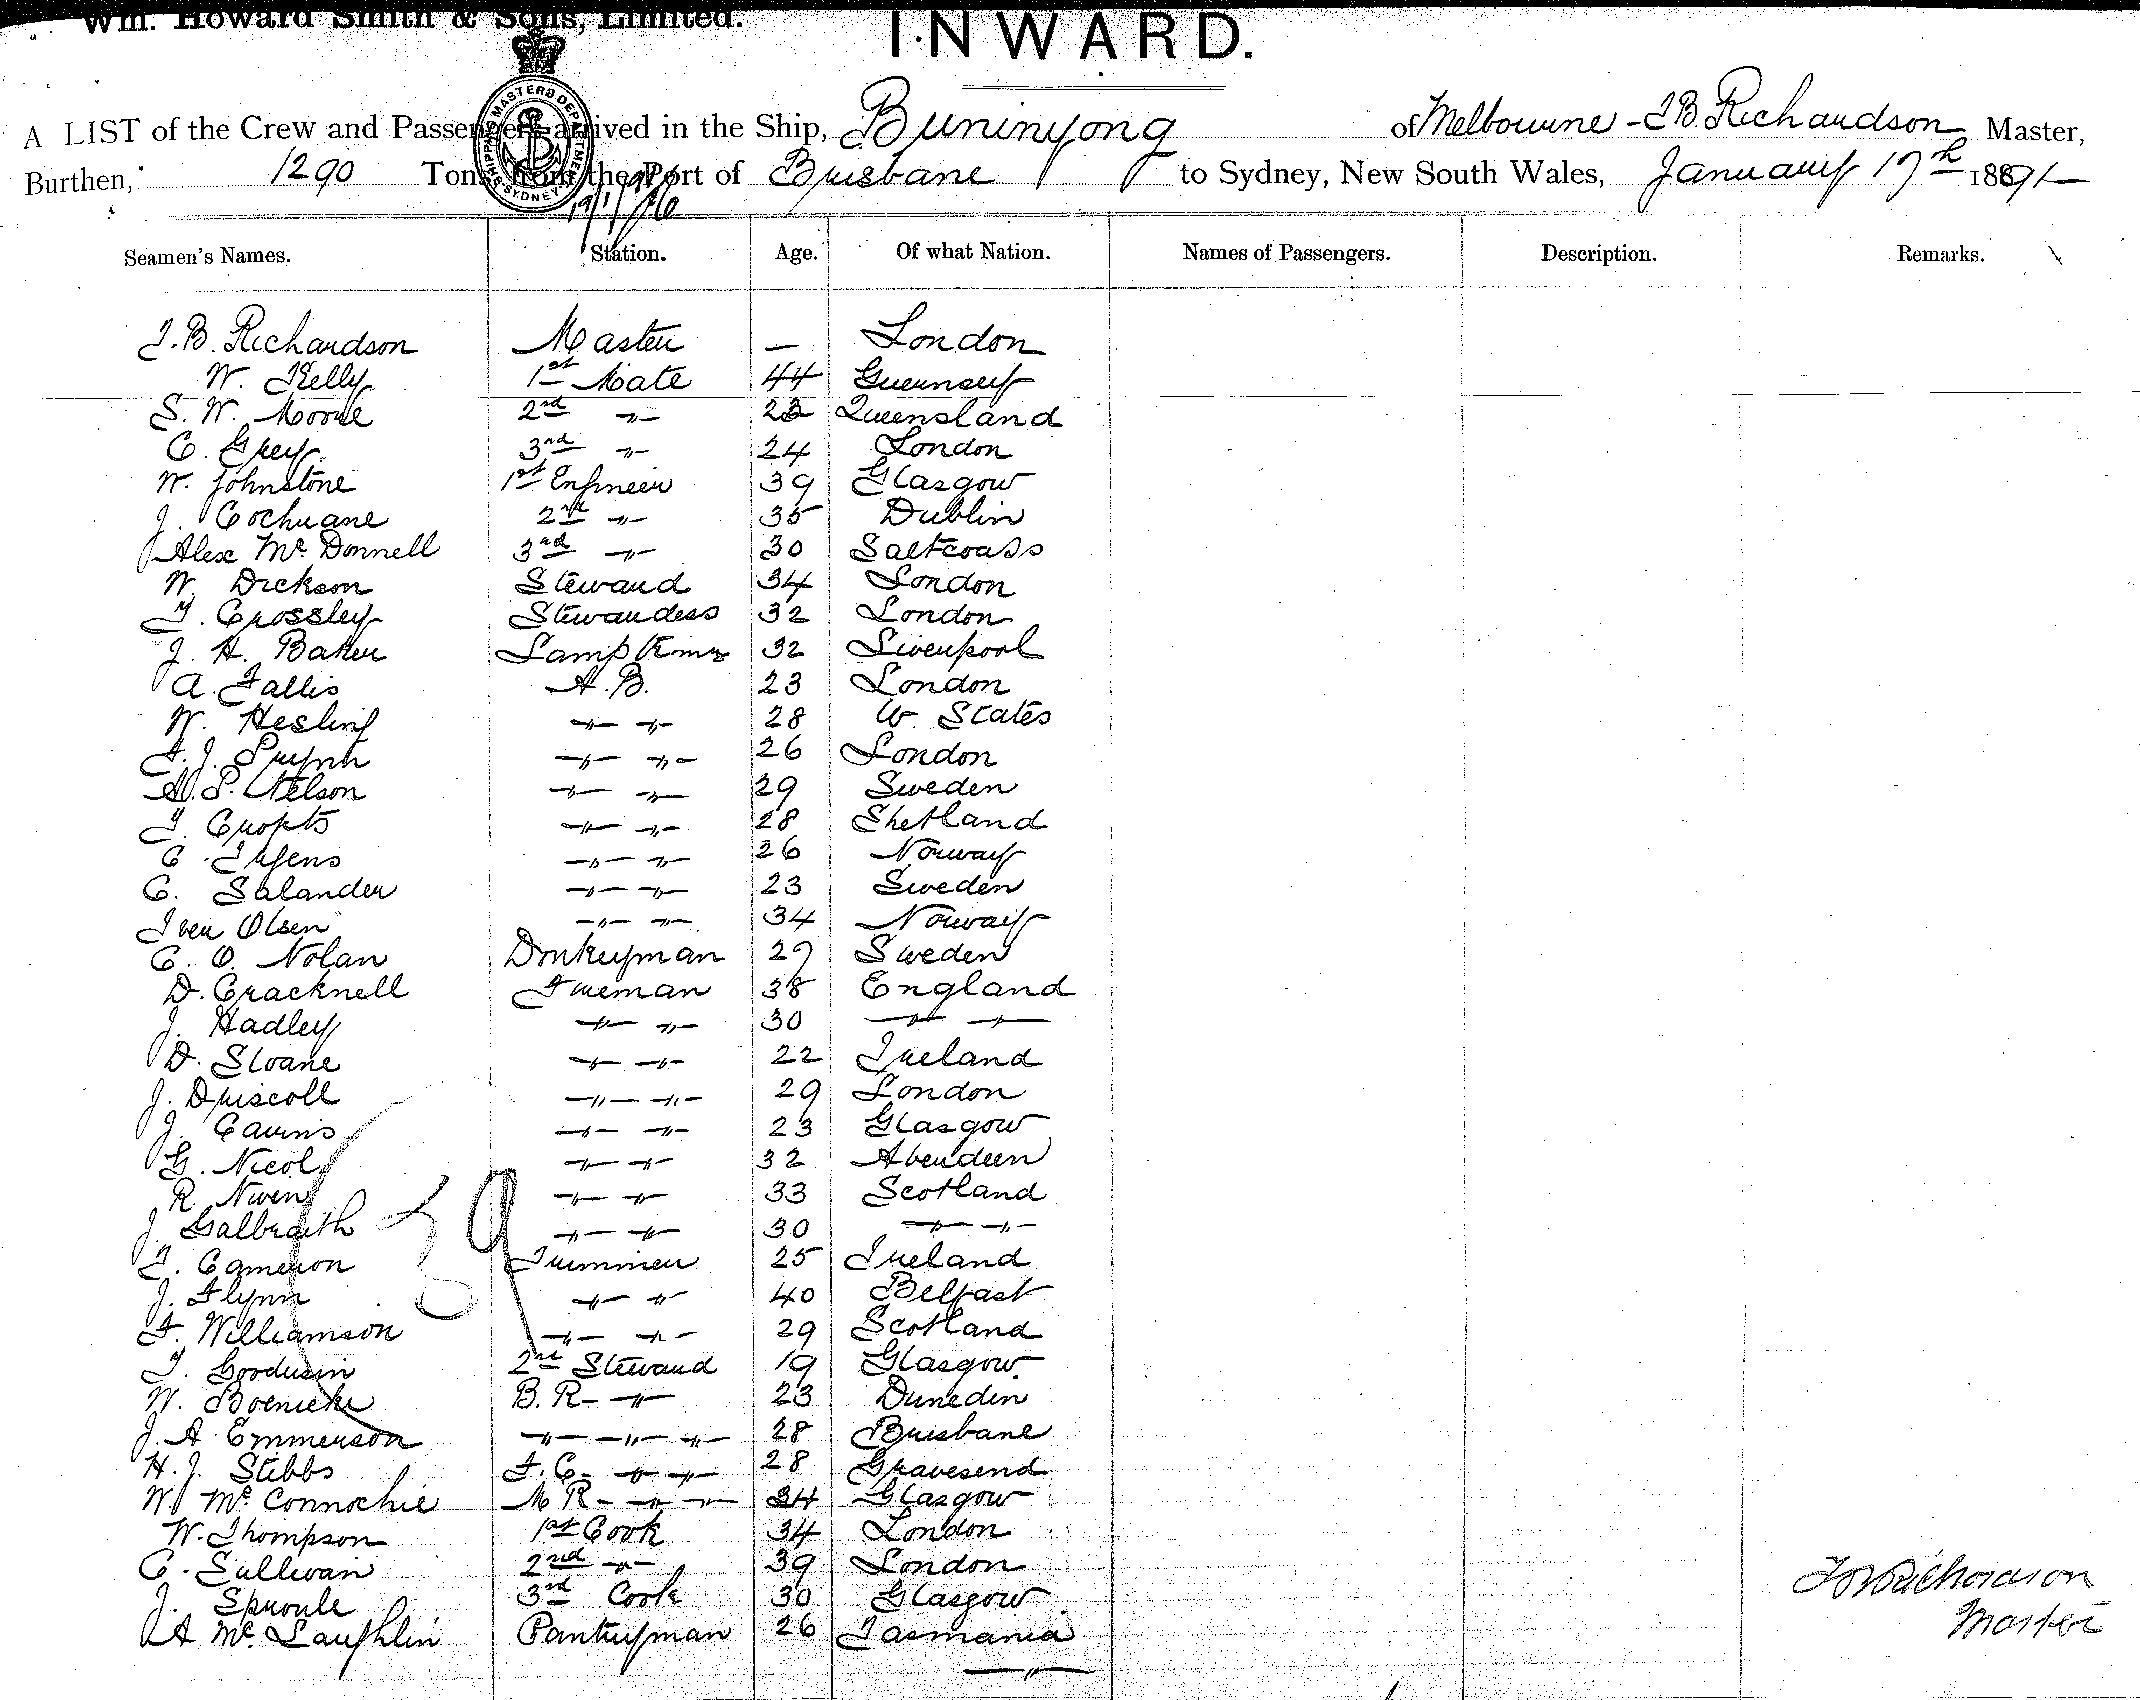 Wm. Howard Smith & Sons, Limited.
INWARD.
A LIST of the Crew and Passengers arrived in the Ship, Buninyong of Melbourne - J B. Richardson Master,
Burthen, 1290 Tons from the Port of Brisbane to Sydney, New South Wales, January 17th 1891
SHIPPING MASTERS DEPARTMENT SYDNEY
Seamen's Names. Station. Age. Of what Nation. Names of Passengers. Description. Remarks.
J. B. Richardson Master — London
W. Kelly 1st Mate 44 Guernsey
S. W. Moore 2nd " 23 Queensland
C. Grey 3rd " 24 London
W. Johnstone 1st Engineer 39 Glasgow
J. Cochrane 2nd " 35 Dublin
Alex Mc Donnell 3rd " 30 Saltcoats
W Dickson Steward 34 London
T. Crossley Stewardess 32 London
J. H. Baker Lamp Trimr 32 Liverpool
A. Fallis A. B. 23 London
W. Hesling " " 28 U. States
F. J. Prynn " " 26 London
N. P. Nelson " " 29 Sweden
T. Cropts " " 28 Shetland
C. Irgens " " 26 Norway
C. Salander " " 23 Sweden
Iver Olsen " " 34 Norway
C. O. Nolan Donkeyman 29 Sweden
D. Cracknell Fireman 38 England
J. Hadley " " 30 " "
D. Sloane " " 22 Ireland
J. Driscoll " " 29 London
J. Cairns " " 23 Glasgow
G. Nicol " " 32 Aberdeen
R. Niven " " 33 Scotland
J. Galbraith " " 30 " "
T. Cameron Trimmer 25 Ireland
J. Flynn " " 40 Belfast
F. Williamson " " 29 Scotland
T. Goodwin 2nd Steward 19 Glasgow
W. Boenicke B. R - " 23 Dunedin
J. A. Emmerson " " " 28 Brisbane
H. J. Stibbs F. C - " " 28 Gravesend
W. Mc Connochie M R - " " 34 Glasgow
W. Thompson 1st Cook 34 London
C. Sullivan 2nd " 39 London
J. Sproule 3rd Cook 30 Glasgow
A Mc Laughlin Pantryman 26 Tasmania
J B Richardson
Master